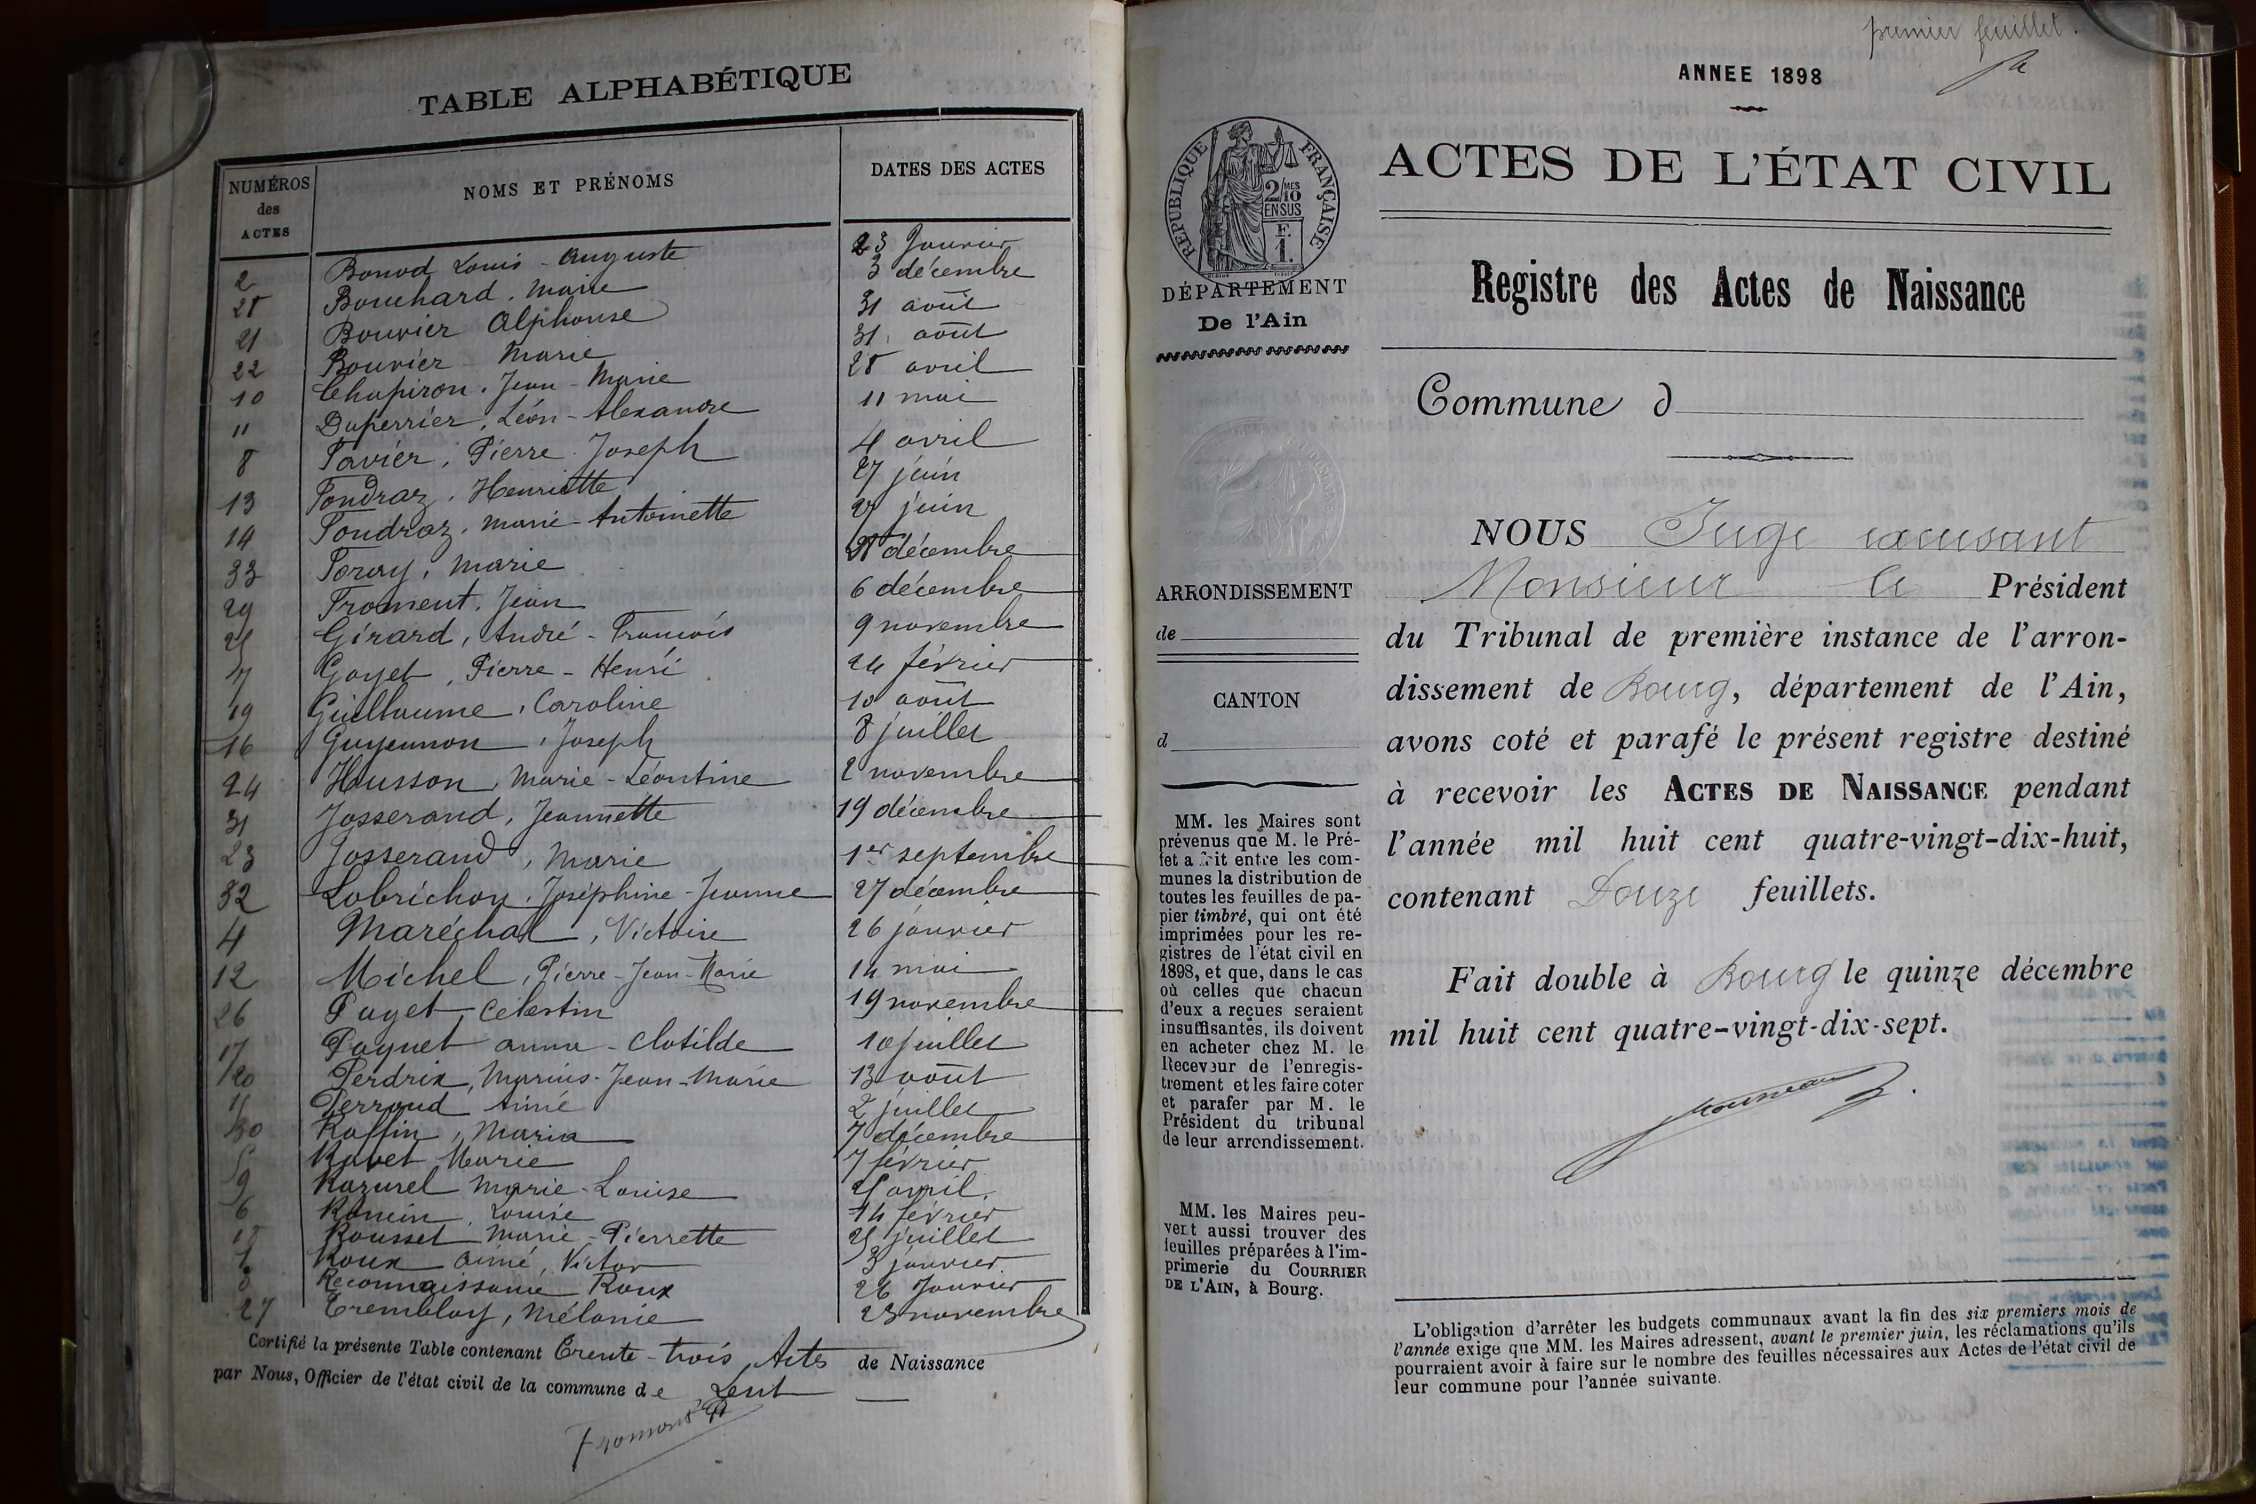 TABLE ALPHABÉTIQUE
NUMÉROS des ACTES
NOMS ET PRÉNOMS
DATES DES ACTES
2 Bonod Louis - Auguste 23 Janvier
28 Bouchard, Marie 3 décembre
21 Bouvier Alphonse 31 août
22 Bouvier Marie 31 août
10 Chapiron, Jean - Marie 28 avril
11 Duperrier, Léon - Alexandre 11 mai
8 Favier, Pierre Joseph 4 avril
13 Fondraz, Henriette 27 juin
14 Fondraz, Marie - Antoinette juin
33 Foray, Marie décembre
29 Froment, Jean 6 décembre
25 Girard, André - François 9 novembre
7 Goyet, Pierre - Henri 24 février
19 Guillaume, Caroline 10 août
16 Guyennon, Joseph 8 juillet
24 Husson, Marie - Léontine 2 novembre
31 Josserand, Jeannette 19 décembre
23 Josserand, Marie 1er septembre
32 Lobrichon, Joséphine - Jeanne 27 décembre
4 Maréchal, Victoire 26 janvier
12 Michel, Pierre - Jean - Marie 14 mai
26 Paget, Célestin 19 novembre
17 Paquet Anna - Clotilde 10 juillet
20 Perdrix, Marius - Jean - Marie 13 août
Perroud Aimé 2 juillet
30 Raffin, Maria 7 décembre
5 Ravet Marie 7 février
9 Razurel Marie - Louise avril
6 Romin, Louise 14 février
18 Rousset Marie - Pierrette 25 juillet
1 Roux Aimé, Victor 3 janvier
3 Reconnaissance Roux 26 Janvier
27 Tremblay, Mélanie 23 novembre
Certifié la présente Table contenant Trente - trois Actes de Naissance
par Nous, Officier de l'état civil de la commune de Lent
premier feuillet.
ANNEE 1898
RÉPUBLIQUE FRANÇAISE
2/10MES
EN SUS
F.
1.
DÉPARTEMENT
De l'Ain
ARRONDISSEMENT
de
CANTON
d
MM. les Maires sont
prévenus que M. le Pré-
fet a fait entre les com-
munes la distribution de
toutes les feuilles de pa-
pier timbré, qui ont été
imprimées pour les re-
gistres de l'état civil en
1898, et que, dans le cas
où celles que chacun
d'eux a reçues seraient
insuffisantes, ils doivent
en acheter chez M. le
Receveur de l'enregis-
trement et les faire coter
et parafer par M. le
Président du tribunal
de leur arrondissement.
MM. les Maires peu-
vent aussi trouver des
feuilles préparées à l'im-
primerie du COURRIER
DE L'AIN, à Bourg.
ACTES DE L'ÉTAT CIVIL
Registre des Actes de Naissance
Commune d
NOUS Juge excusant
Monsieur le Président
du Tribunal de première instance de l'arron-
dissement de Bourg, département de l'Ain,
avons coté et parafé le présent registre destiné
à recevoir les ACTES DE NAISSANCE pendant
l'année mil huit cent quatre-vingt-dix-huit,
contenant Douze feuillets.
Fait double à Bourg le quinze décembre
mil huit cent quatre-vingt-dix-sept.
L'obligation d'arrêter les budgets communaux avant la fin des six premiers mois de
l'année exige que MM. les Maires adressent, avant le premier juin, les réclamations qu'ils
pourraient avoir à faire sur le nombre des feuilles nécessaires aux Actes de l'état civil de
leur commune pour l'année suivante.